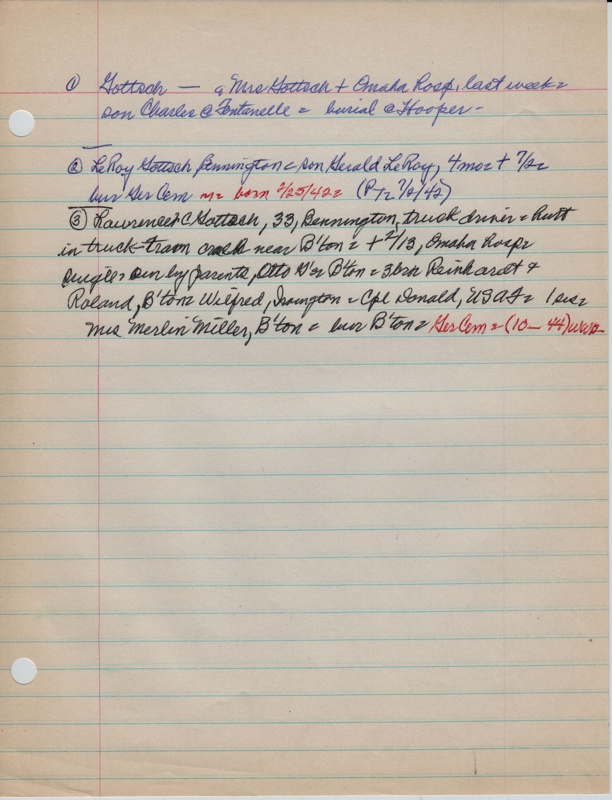 ① Gottsch — a Mrs Gottsch + Omaha Hosp, last week =
son Charles @ Fontanelle = burial @ Hooper -
② LeRoy Gottsch, Bennington = son Gerald LeRoy, 4 mos + 7/2 =
bur Ger Cem = born 2/25/42 = (P 7/2/42)
③ Lawrence C Gottsch, 33, Bennington, truck driver = hurt
in truck-train crash near B'ton = + 2/13, Omaha hosp =
single = sur by parents, Otto G's B'ton = 3 bro Reinhardt &
Roland, B'ton = Wilfred, Irvington = Cpl Donald, USAF = 1 sis =
Mrs Merlin Miller, B'ton = bur B'ton = Ger Cem = (10 — 44)